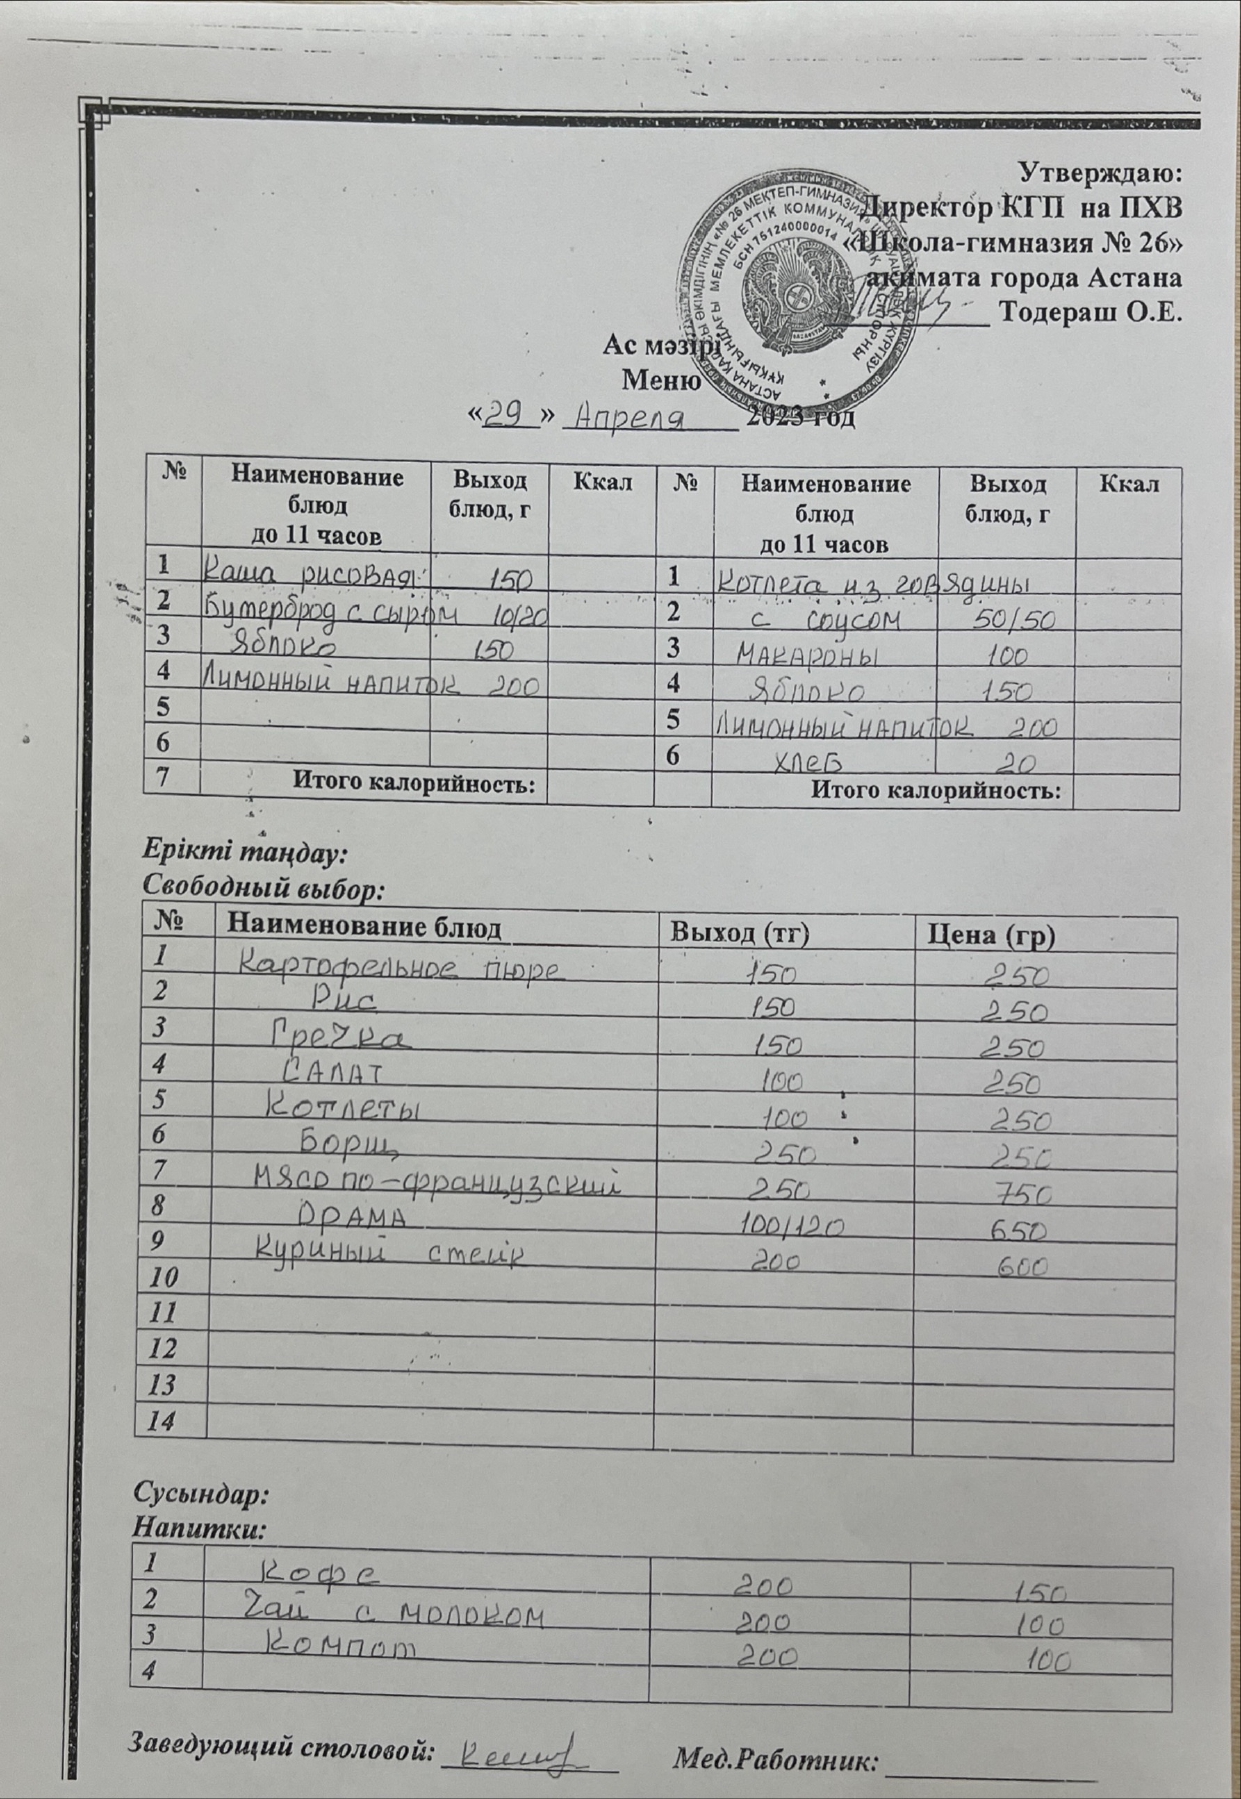 Утверждаю:
Директор КГП на ПХВ
«Школа-гимназия № 26»
акимата города Астана
Тодераш О.Е.
БСН 751240000014
Ас мәзірі
Меню
«29» Апреля 2023 год
№ Наименование блюд до 11 часов Выход блюд, г Ккал № Наименование блюд до 11 часов Выход блюд, г Ккал
1 Каша рисовая 150 1 Котлета из говядины
2 Бутерброд с сыром 10/20 2 с соусом 50/50
3 Яблоко 150 3 Макароны 100
4 Лимонный напиток 200 4 Яблоко 150
5 5 Лимонный напиток 200
6 6 Хлеб 20
7 Итого калорийность: Итого калорийность:
Ерікті таңдау:
Свободный выбор:
№ Наименование блюд Выход (тг) Цена (гр)
1 Картофельное пюре 150 250
2 Рис 150 250
3 Гречка 150 250
4 Салат 100 250
5 Котлеты 100 250
6 Борщ 250 250
7 Мясо по-французский 250 750
8 Орама 100/120 650
9 Куриный стейк 200 600
10
11
12
13
14
Сусындар:
Напитки:
1 Кофе 200 150
2 Чай с молоком 200 100
3 Компот 200 100
4
Заведующий столовой: Мед.Работник: